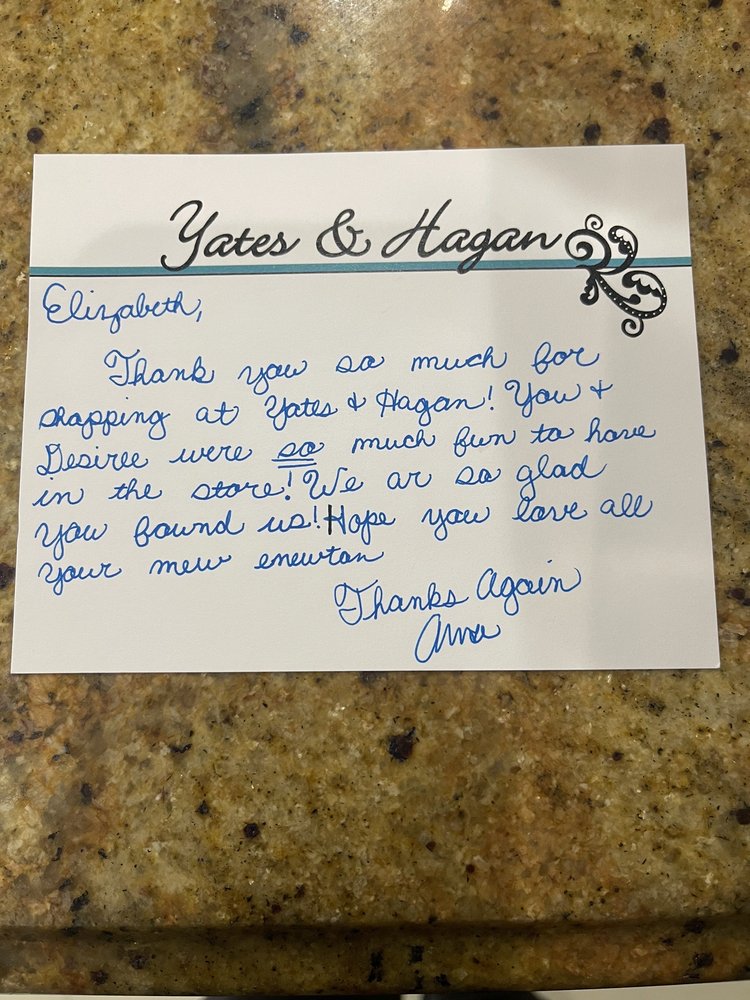 Yates & Hagan
Elizabeth,
Thank you so much for
shopping at Yates & Hagan! You +
Desiree were so much fun to have
in the store! We ar so glad
you found us! Hope you love all
your new enewton
Thanks Again